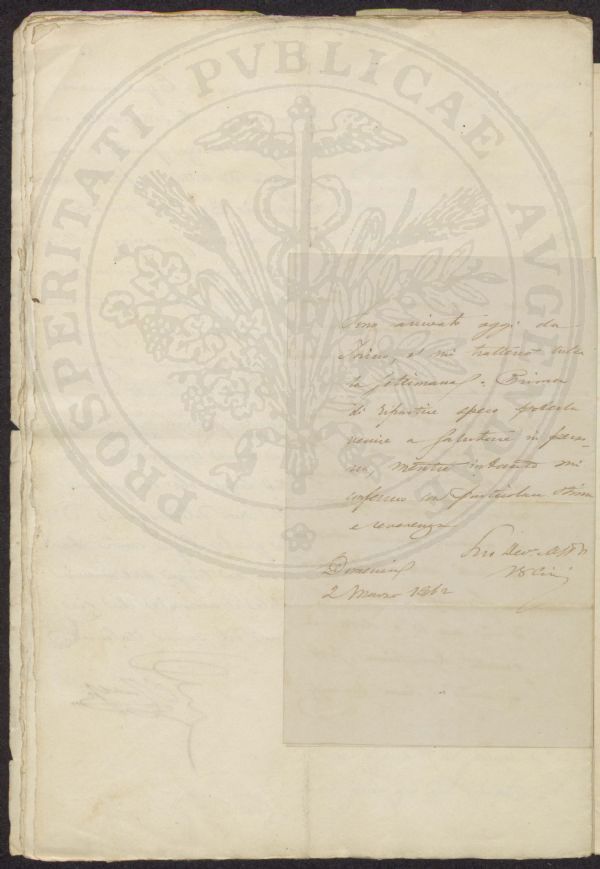 PROSPERITATI PVBLICAE AVGENDAE
Sono arrivato oggi da
Torino, e mi trattengo tutta
la settimana. Prima
di ripartire spero poterla
venire a salutare in perso-
na, mentre intanto mi
confermo con particolare stima
e reverenza
Suo Dev.
Domenica
2 Marzo 1862